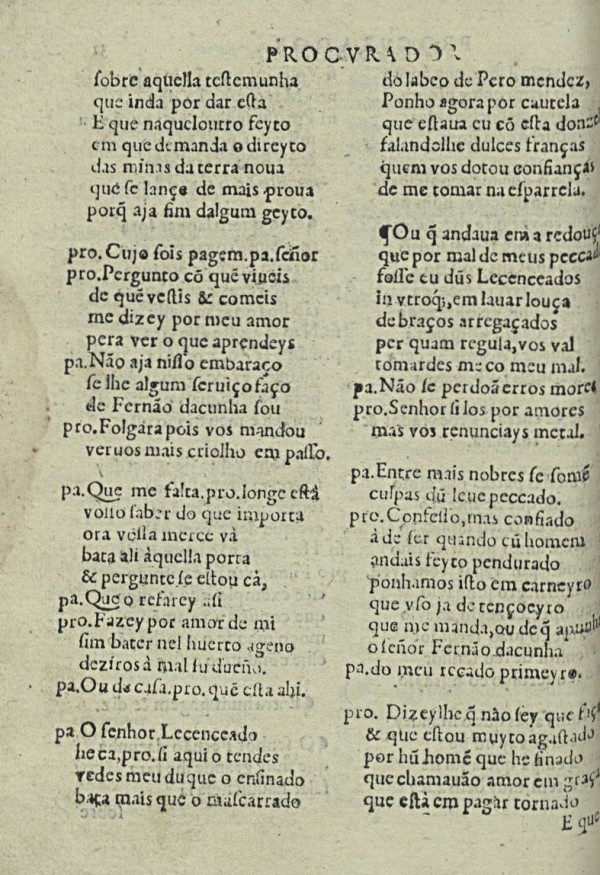 PROCVRADOR
sobre aquella testemunha
que inda por dar esta
E que naqueloutro feyto
em que demanda o direyto
das minas da terra noua
que se lanço de mais proua
porq̃ aja fim dalgum geyto.
pro. Cujo sois pagem. pa. señor
pro. Pergunto cõ quẽ viueis
de quẽ vestis & comeis
me dizey por meu amor
pera ver o que aprendeys
pa. Não aja nisso embaraço
se lhe algum seruiço faço
de Fernão dacunha sou
pro. Folgara pois vos mandou
veruos mais criolho em passo.
pa. Que me falta, pro. longe està
vosso saber do que importa
ora vessa merce và
bata ali àquella porta
& pergunte se estou cà,
pa. Que o refarey asi
pro. Fazey por amor de mi
sim bater nel huerto ageno
deziros à mal su dueño.
pa. Ou de casa. pro. quẽ esta ahi.
pa O senhor Lecenceado
he ca, pro. si aqui o tendes
vedes meu duque o ensinado
baça mais que o mascarrado
do labeo de Pero mendez,
Ponho agora por cautela
que estaua eu cõ esta
falandolhe dulces franças
quem vos dotou confianças
de me tomar na esparrela.
¶Ou q̃ andaua em a
que por mal de meus
fosse eu dũs Lecenceados
in vtroq;, em lauar louça
de braços arregaçados
per quam regula, vos val
tomardes me co meu mal.
pa. Não se perdoã erros mores
pro. Senhor si los por amores
mas vos renunciays metal.
pa. Entre mais nobres se somẽ
culpas dũ leue peccado.
pro. Confesso, mas confiado
à de ser quando cũ homem
andais feyto pendurado
ponhamos isto em carneyro
que vso ja de tençoeyro
que me manda, ou de q̃
o señor Fernão dacunha
pa. do meu recado primeyro.
pro. Dizeylhe q̃ não sey que
& que estou muyto agastado
por hũ homẽ que he finado
que chamauão amor em graça
que està em pagar tornado
E que